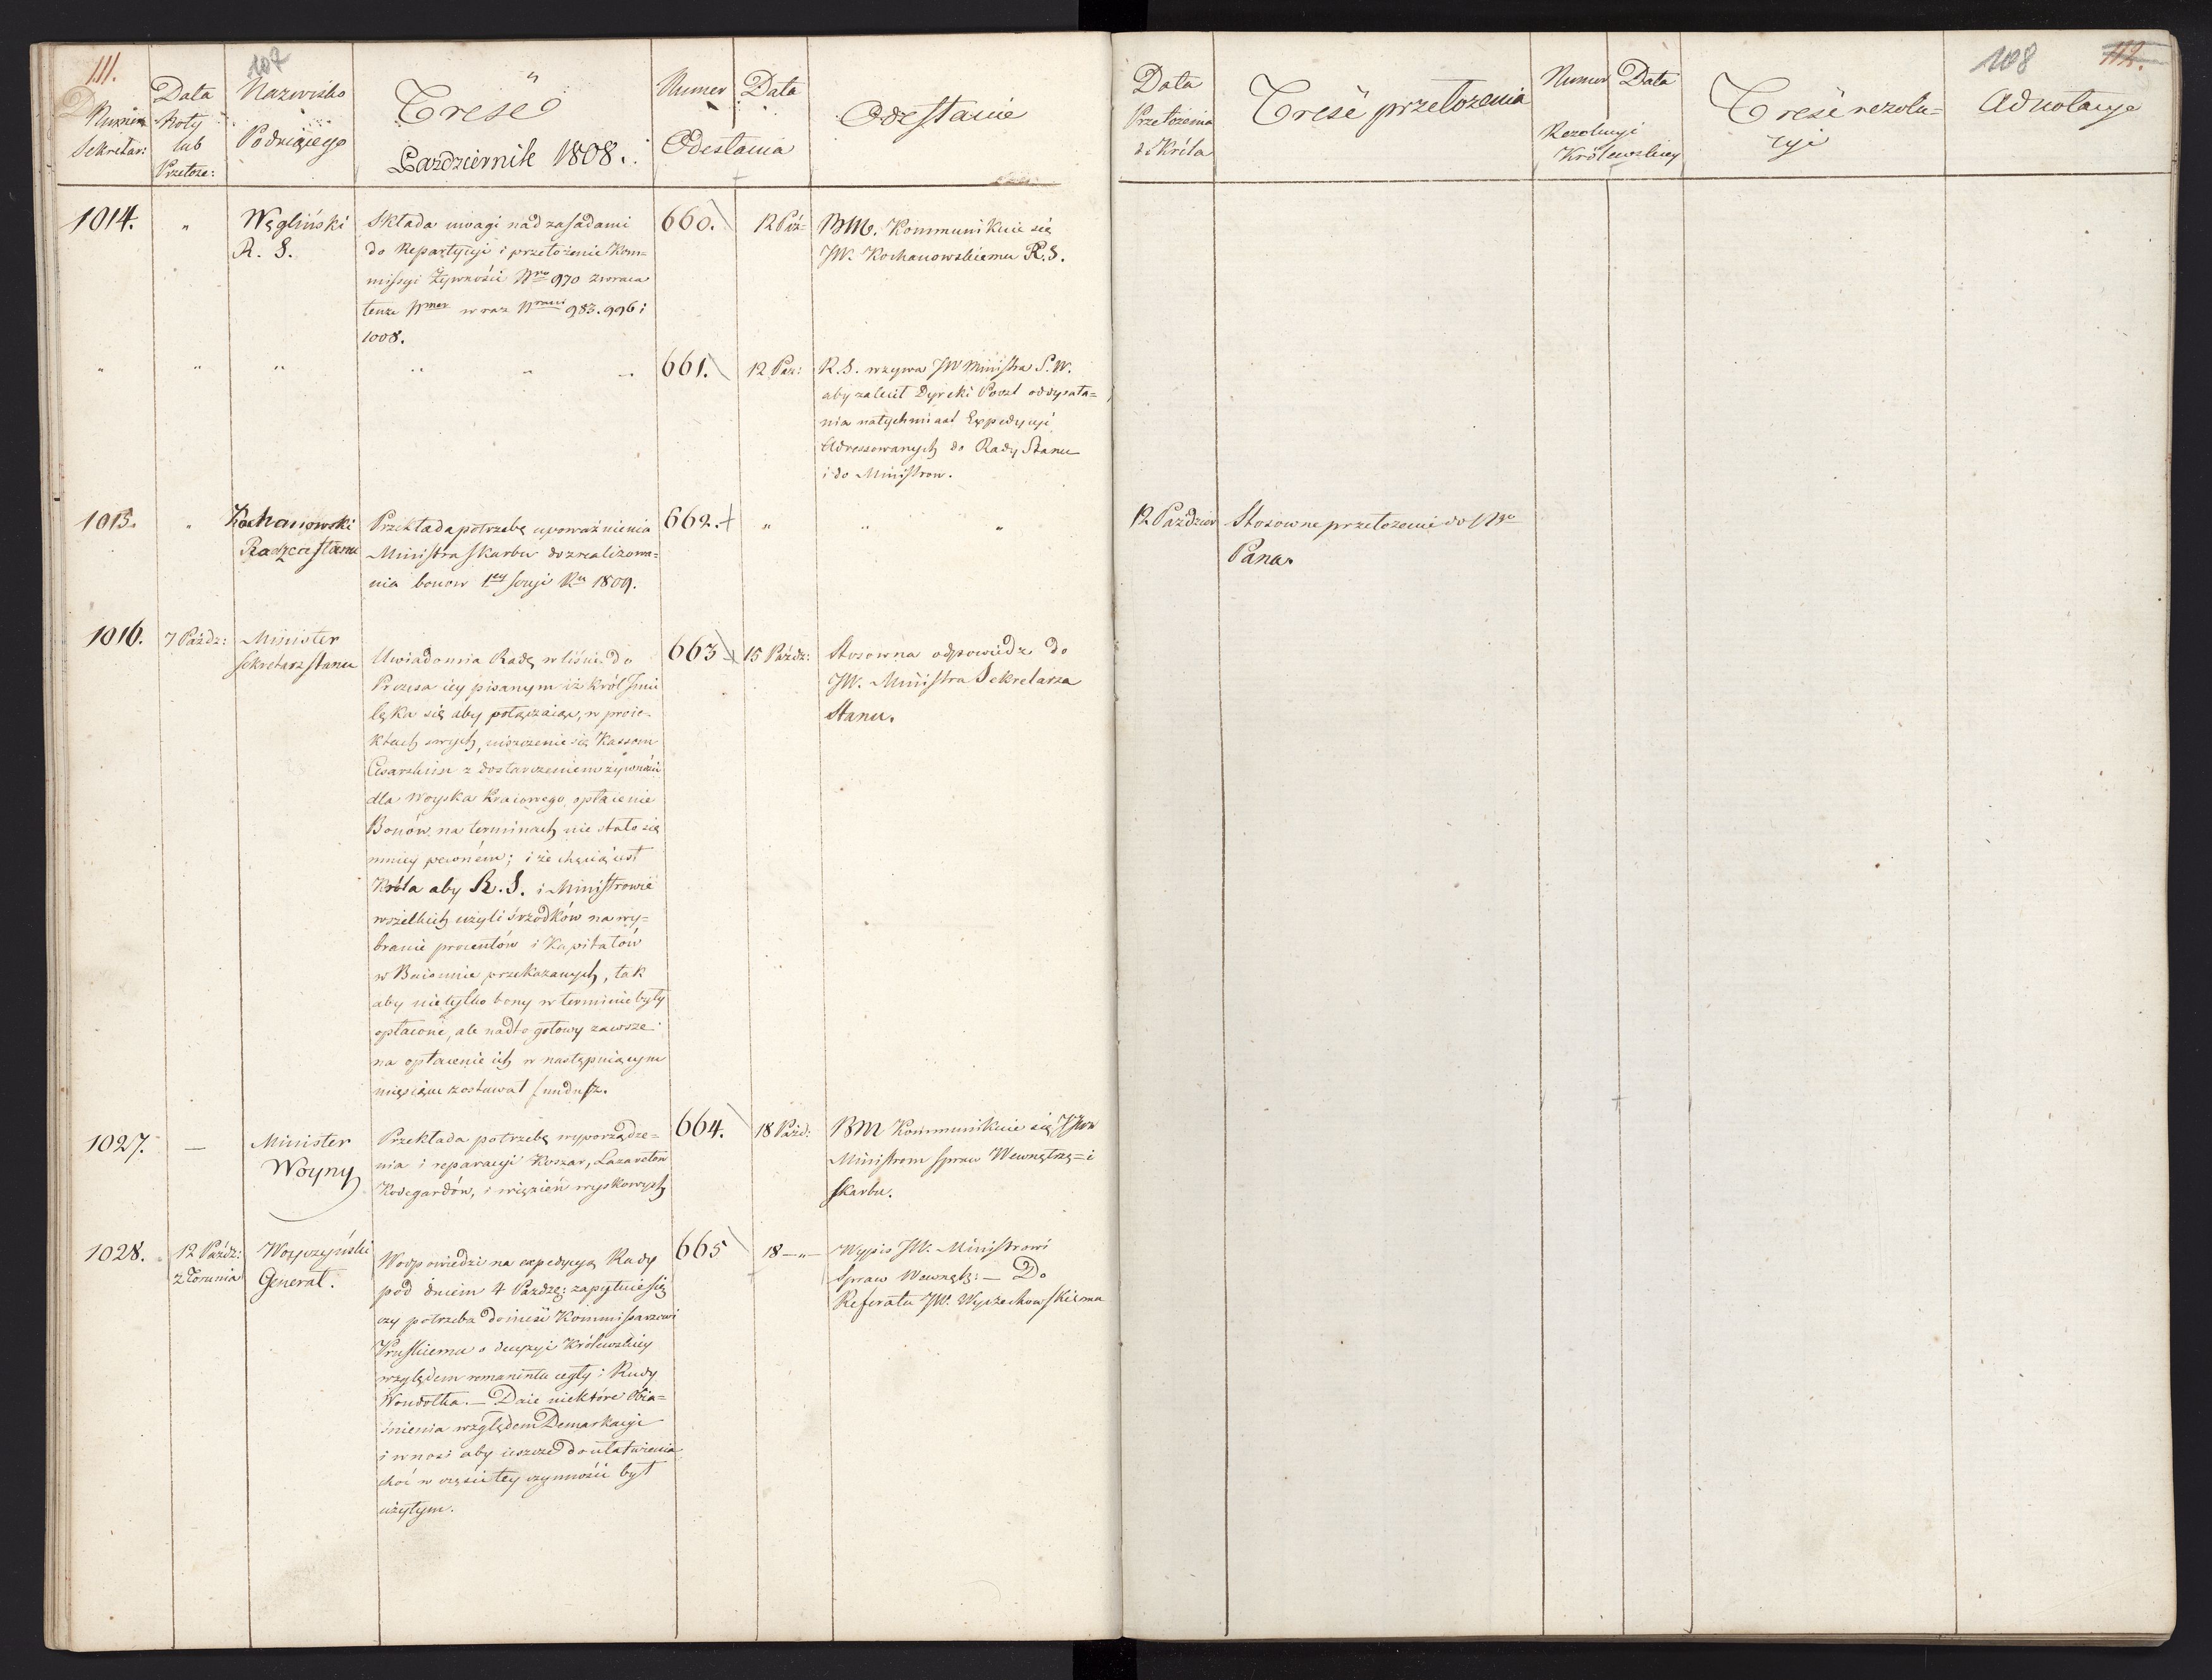 111.
107
Numer
Sekretar:
Data
Noty
lub
Przełoże:
Nazwisko
Podaiącego
Treść
Październik 1808.
Numer Data
Odesłania
Odesłanie
1014. " Węgliński
R. S.
Składa uwagi nad zasadami
do Repartycyi i przełożenie Kom=
missyi Żywności Nro 970 zwraca
tenże Nmer wraz Nrami 983. 996 i
1008.
660. 12 Paź=
BM. Kommunikuie się
JW. Kochanowskiemu R. S.
" " " " " "
661. 12 Paz:
R. S. wzywa JW Ministra S. W.
aby zalecił Dyreki Poczt odsyła=
nia natychmiast Expedycyi
Adressowanych do Rady Stanu
i do Ministrow.
1015. " Kochanowski
Radzca stanu
Przekłada potrzebę upoważnienia
Ministra skarbu do zrealizowa=
nia bonow 1ey seryi Ru 1809.
662. + " " "
1016. 7 Paźdz: Minister
Sekretarz stanu
Uwiadomia Radę w liście do
Prezesa iey pisanym iż Król Jmć
lęka się aby połączaiąc, w proie-
ktach swych, uiszczenie się Kassom
Cesarskim z dostarczeniem żywności
dla Woyska Kraiowego, opłacenie
Bonów na terminach nie stało się
mniey pewném; i że chęcią iest
Króla aby R. S. i Ministrowie
wszelkich użyli śrzodków na wy=
branie procentów i Kapitałów
w Baionnie przekazanych, tak
aby nie tylko bony w terminie były
opłacone, ale nadto gotowy zawsze
na opłacenie ich w następuiącym
miesiącu zostawał fundusz.
663 + 15 Paźdz:
Stosowna odpowiedz do
JW. Ministra Sekretarza
Stanu.
1027. — Minister
Woyny
Przekłada potrzebę wyporządze=
nia i reparacyi Koszar, Lazaretow
Kodegardów, i więzień woyskowych
664. 18 Paźd:
BM Kommunikuie się JWW
Ministrom spraw Wewnętrz= i
skarbu.
1028. 12 Paźdz:
z Torunia
Woyczyński
Generał.
W odpowiedzi na expedycyą Rady
pod dniem 4 Paźdz: zapytuie się
czy potrzeba donieść Kommissarzowi
Pruskiemu o decyzyi Królewskiey
względem remanentu cegły i Rudy
Wondołka. — Daie niektóre Obia=
śnienia względem Demarkacyi
i wnosi aby ieszcze do ułatwienia
choć w części tey czynności był
użytym.
665 18 — " —
Wypis JW. Ministrowi
Spraw Wewnętz: — Do
Referatu JW. Wyczechowskiemu
108 112.
Data
Przełożenia
do Króla
Treść przełożenia
Numer Data
Rezolucyi
Królewskiey
Treść rezolu=
cyi
Adnotacye
12 Paździer Stosowne przełożenie do Ngo
Pana.